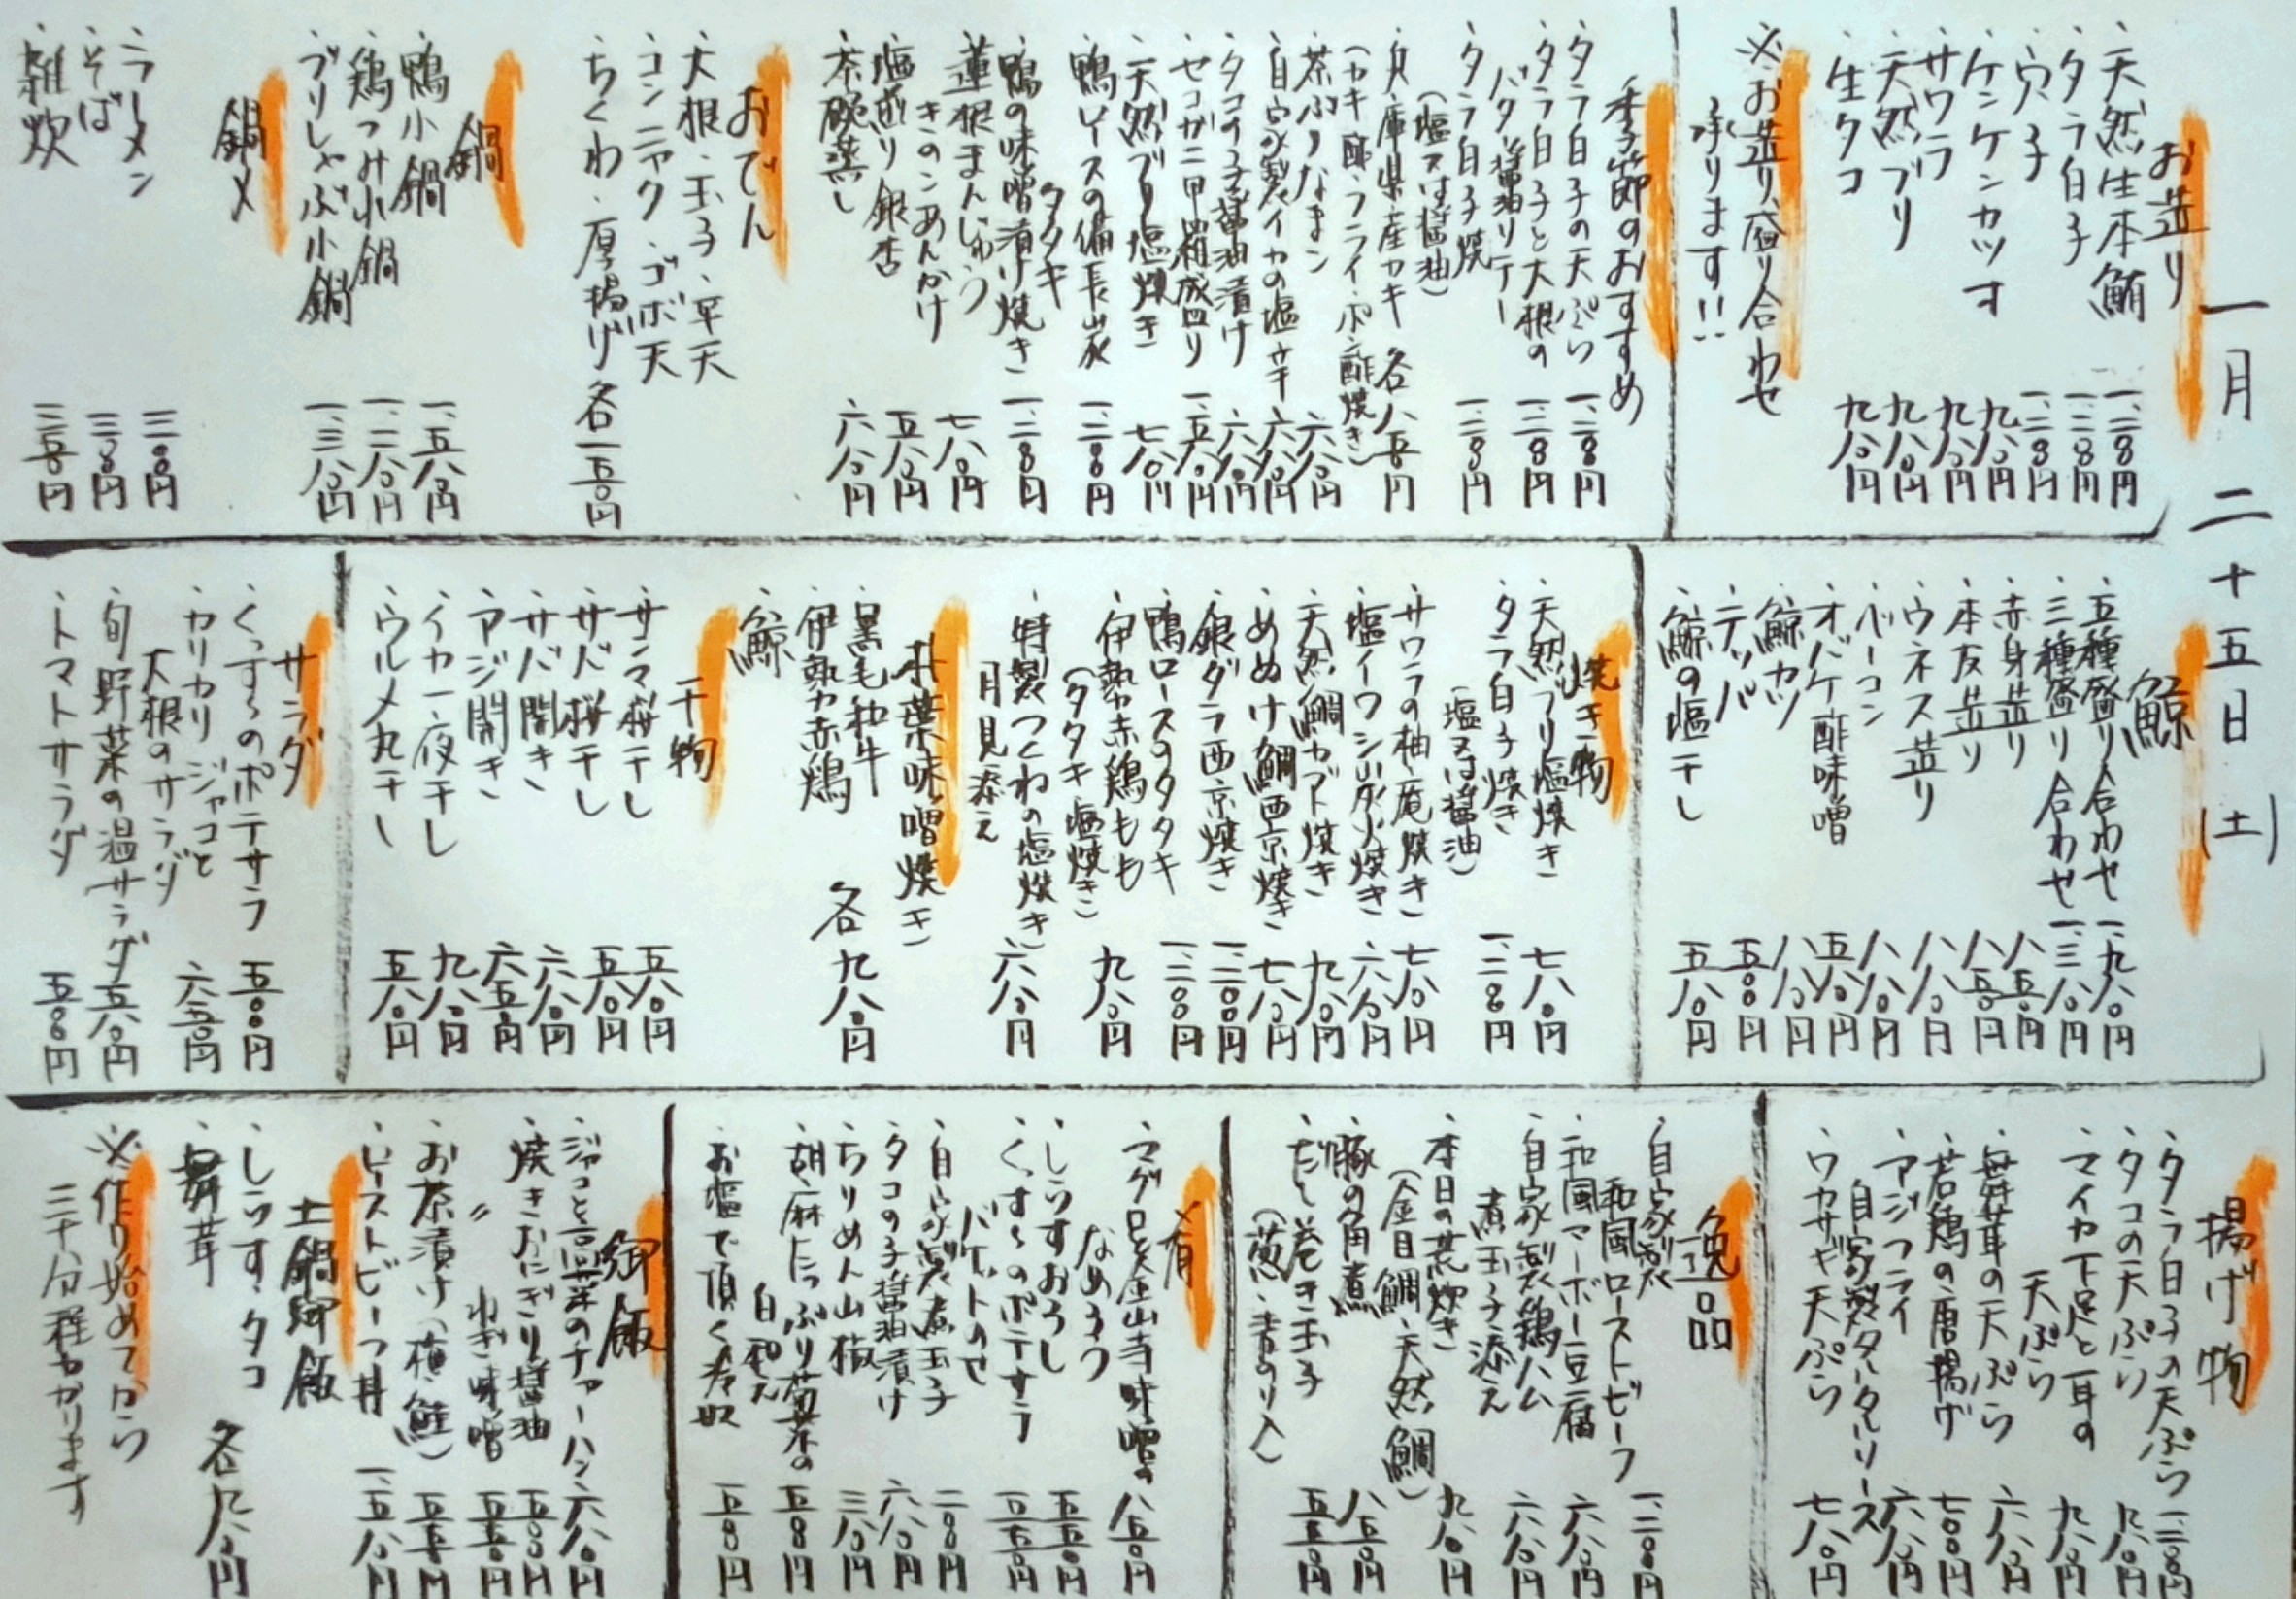 一月二十五日(土)
お造り
・天然生本鮪 一、二〇〇円
・タラ白子 一、二〇〇円
・穴子 一、二〇〇円
・ケンケンカツオ 九八〇円
・サワラ 九八〇円
・天然ブリ 九八〇円
・生タコ 九八〇円
※お造り盛り合わせ
承ります!!
季節のおすすめ
・タラ白子の天ぷら 一、二〇〇円
・タラ白子と大根の
バター醤油ソテー 一、二〇〇円
・タラ白子焼
(塩又は醤油) 一、二〇〇円
・兵庫県産カキ 各八五〇円
(カキ酢・フライ・ポン酢焼き)
・茶ぶりなまこ 六八〇円
・自家製イカの塩辛 六八〇円
・タコの子醤油漬け 六八〇円
・セコガニ甲羅盛り 一、五八〇円
・天然ブリ塩焼き 七八〇円
・鴨ロースの備長炭
タタキ 一、二〇〇円
・鴨の味噌漬け焼き 一、二〇〇円
・蓮根まんじゅう
きのこあんかけ 七八〇円
・塩煎り銀杏 五八〇円
・茶碗蒸し 六八〇円
おでん
・大根・玉子・平天
・コンニャク・ゴボ天
・ちくわ・厚揚げ 各一五〇円
鍋
・鴨小鍋 一、五八〇円
・鶏つみ小鍋 一、二八〇円
・ブリしゃぶ小鍋 一、三八〇円
鍋〆
・ラーメン 三〇〇円
・そば 三〇〇円
・雑炊 三五〇円
鯨
・五種盛り合わせ 一、九八〇円
・三種盛り合わせ 一、三八〇円
・赤身造り 八五〇円
・本皮造り 八五〇円
・ウネス造り 八八〇円
・ベーコン 八八〇円
・オバケ酢味噌 五八〇円
・鯨カツ 八八〇円
・テッパ 五〇〇円
・鯨の塩干し 五八〇円
焼き物
・天然ブリ塩焼き 七八〇円
・タラ白子焼き
(塩又は醤油) 一、二〇〇円
・サワラの柚庵焼き 七八〇円
・塩イワシ炭火焼き 六八〇円
・天然鯛カブト焼き 九八〇円
・めぬけ鯛西京焼き 七八〇円
・銀ダラ西京焼き 一、二〇〇円
・鴨ロースのタタキ 一、二〇〇円
・伊勢赤鶏もも
(タタキ・塩焼き) 九八〇円
・特製つくねの塩焼き
月見添え 六八〇円
朴葉味噌焼き
・黒毛和牛
・伊勢赤鶏 各九八〇円
・鯨
干物
・サンマ桜干し 五八〇円
・サバ桜干し 五八〇円
・サバ開き 六八〇円
・アジ開き 六五〇円
・イカ一夜干し 九八〇円
・ウルメ丸干し 五八〇円
サラダ
・くっすーのポテサラ 五〇〇円
・カリカリジャコと
大根のサラダ 六五〇円
・旬野菜の温サラダ 五八〇円
・トマトサラダ 五〇〇円
揚げ物
・タラ白子の天ぷら 一、二〇〇円
・タコの天ぷら 九八〇円
・マイカ下足と耳の
天ぷら 九八〇円
・舞茸の天ぷら 六八〇円
・若鶏の唐揚げ 七〇〇円
・アジフライ
自家製タルタルソース 六八〇円
・ワカサギ天ぷら 七八〇円
逸品
・自家製
和風ローストビーフ 一、二〇〇円
・和風マーボー豆腐 六八〇円
・自家製鶏ハム
煮玉子添え 六八〇円
・本日の荒炊き
(金目鯛・天然鯛) 九八〇円
・豚の角煮 八五〇円
・だし巻き玉子
(葱・青のり入) 五五〇円
〆肴
・マグロ金山寺味噌の
なめろう 八五〇円
・しらすおろし 五五〇円
・くっすーのポテサラ
バケットのせ 五五〇円
・自家製煮玉子 二〇〇円
・タコの子醤油漬け 六八〇円
・ちりめん山椒 三八〇円
・胡麻たっぷり菊菜の
白和え 五〇〇円
・お塩で頂く冷奴 五〇〇円
御飯
・ジャコと高菜のチャーハン 六八〇円
・焼きおにぎり醤油 五〇〇円
・〃 ねぎ味噌 五五〇円
・お茶漬け(梅・鮭) 五五〇円
・ローストビーフ丼 一、五八〇円
土鍋御飯
・しらす・タコ
・舞茸 各九八〇円
※作り始めてから
三十分程かかります